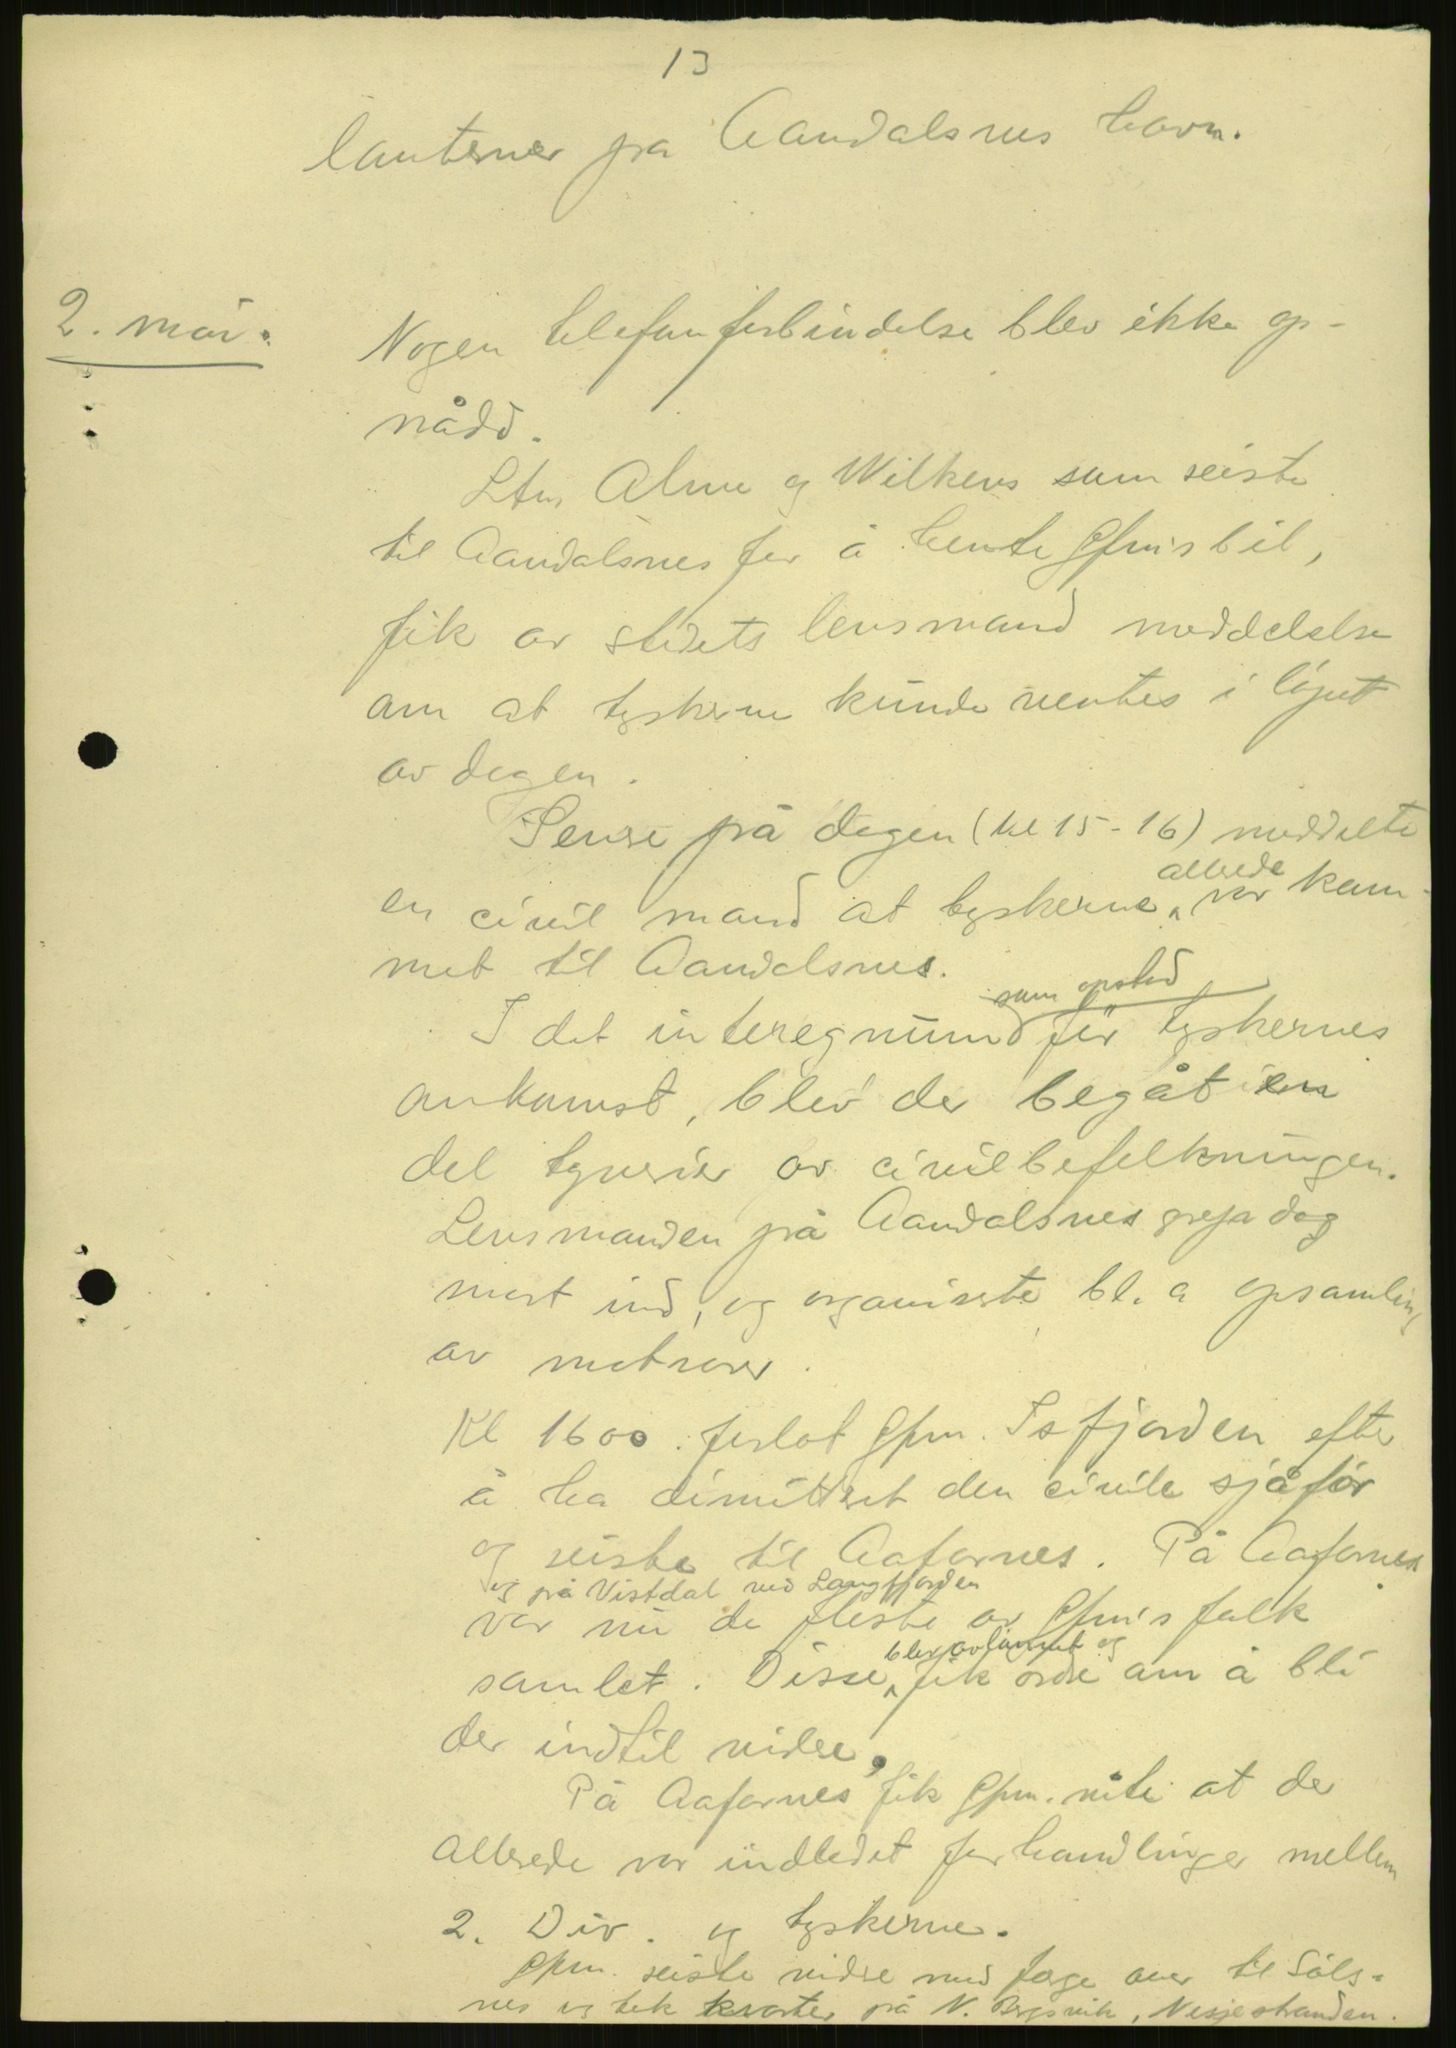 13
lanterner på Aandalsnes havn.
2. mai.
Nogen telefonforbindelse blev ikke op-
nådd.
Ltn. Alme og Wilkens som reiste
til Aandalsnes for å hente Gfm's bil,
fik av stedets lensmand meddelelse
om at tyskerne kunde ventes i løpet
av dagen.
Senere på dagen (kl 15-16) meddelte
en civil mand at tyskerne allerede var kom-
met til Aandalsnes.
I det interegnum som opstod før tyskernes
ankomst, blev der begåt en
del tyverier av civilbefolkningen.
Lensmanden på Aandalsnes grep dog
snart ind, og organiserte bl. a opsamling
av matvarer.
Kl 1600 forlot Gfm. Isfjorden efter
å ha dimittert den civile sjåfør
og reiste til Aafarnes. På Aafarnes
og på Vistdal ved Langfjorden
var nu de fleste av Gfm's folk
samlet. Disse blev avlønnet og fik ordre om å bli
der indtil videre.
På Aafarnes fik Gfm. vite at der
allerede var indledet forhandlinger mellem
2. Div. og tyskerne.
Gfm. reiste videre med ferge over til Søls-
nes og tok kvarter på N. Bergsvik, Nesjestranden.